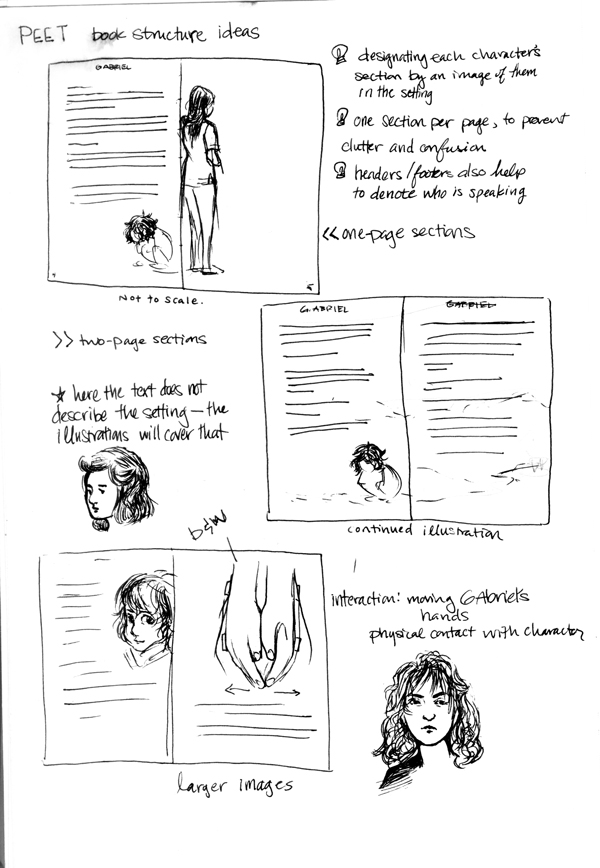 PEET book structure ideas
GABRIEL
designating each character's
section by an image of them
in the setting
one section per page, to prevent
clutter and confusion
headers/footers also help
to denote who is speaking
<< one-page sections
Not to scale.
>> two-page sections
☆ here the text does not
describe the setting — the
illustrations will cover that
GABRIEL
GABRIEL
continued illustration
b&w
interaction: moving GAbriel's
hands
physical contact with character
larger images